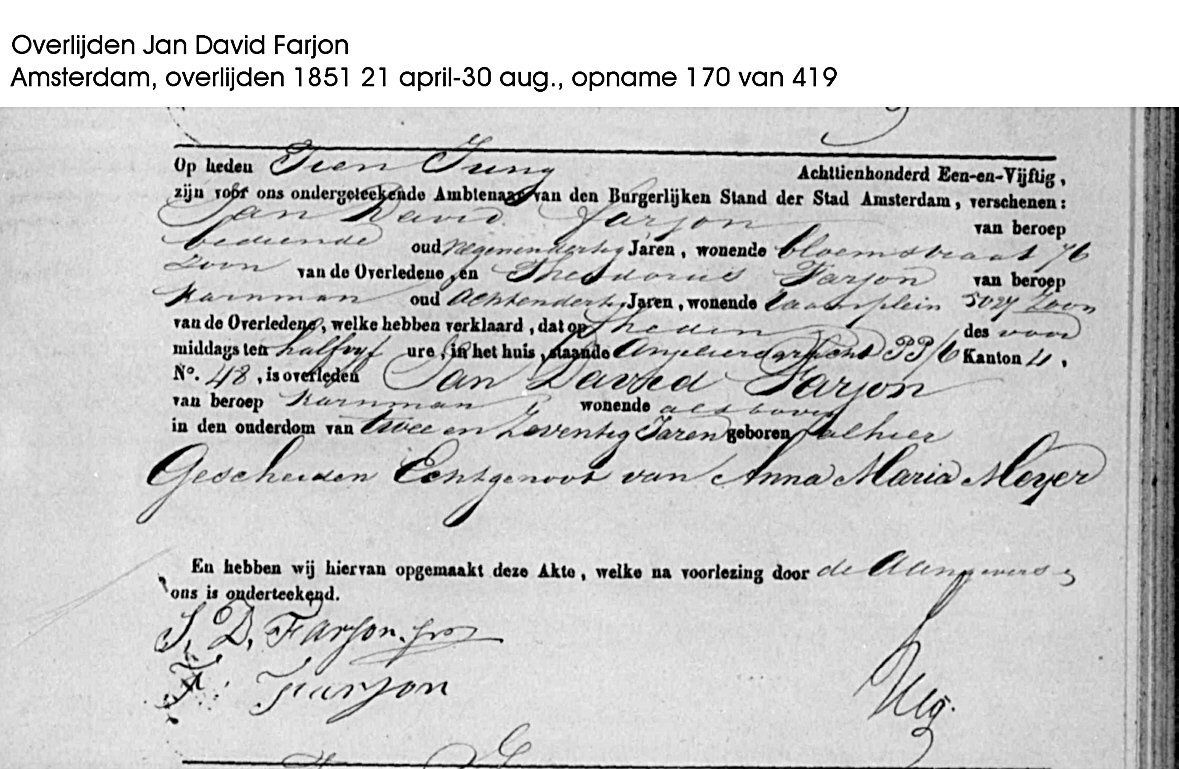 Overlijden Jan David Farjon
Amsterdam, overlijden 1851 21 april-30 aug., opname 170 van 419
Op heden Tien Juny Achttienhonderd Een-en-Vijftig,
zijn voor ons ondergeteekende Ambtenaar van den Burgerlijken Stand der Stad Amsterdam, verschenen:
Jan David Farjon van beroep
bediende oud negenendertig Jaren, wonende bloemstraat 76
Zoon van de Overledene, en Theodorus Farjon van beroep
Karnman oud Achtendertig Jaren, wonende Zoon
van de Overledene, welke hebben verklaard, dat op heden des voor
middags ten half vyf ure, in het huis, staande Anjeliersgracht PP/6 Kanton 4,
No. 48, is overleden Jan David Farjon
van beroep Karnman wonende als boven
in den ouderdom van twee en Zeventig Jaren geboren alhier
Gescheiden Echtgenoot van Anna Maria Meyer
En hebben wij hiervan opgemaakt deze Akte, welke na voorlezing door de Aangevers &
ons is onderteekend.
J. D. Farjon
T. Farjon